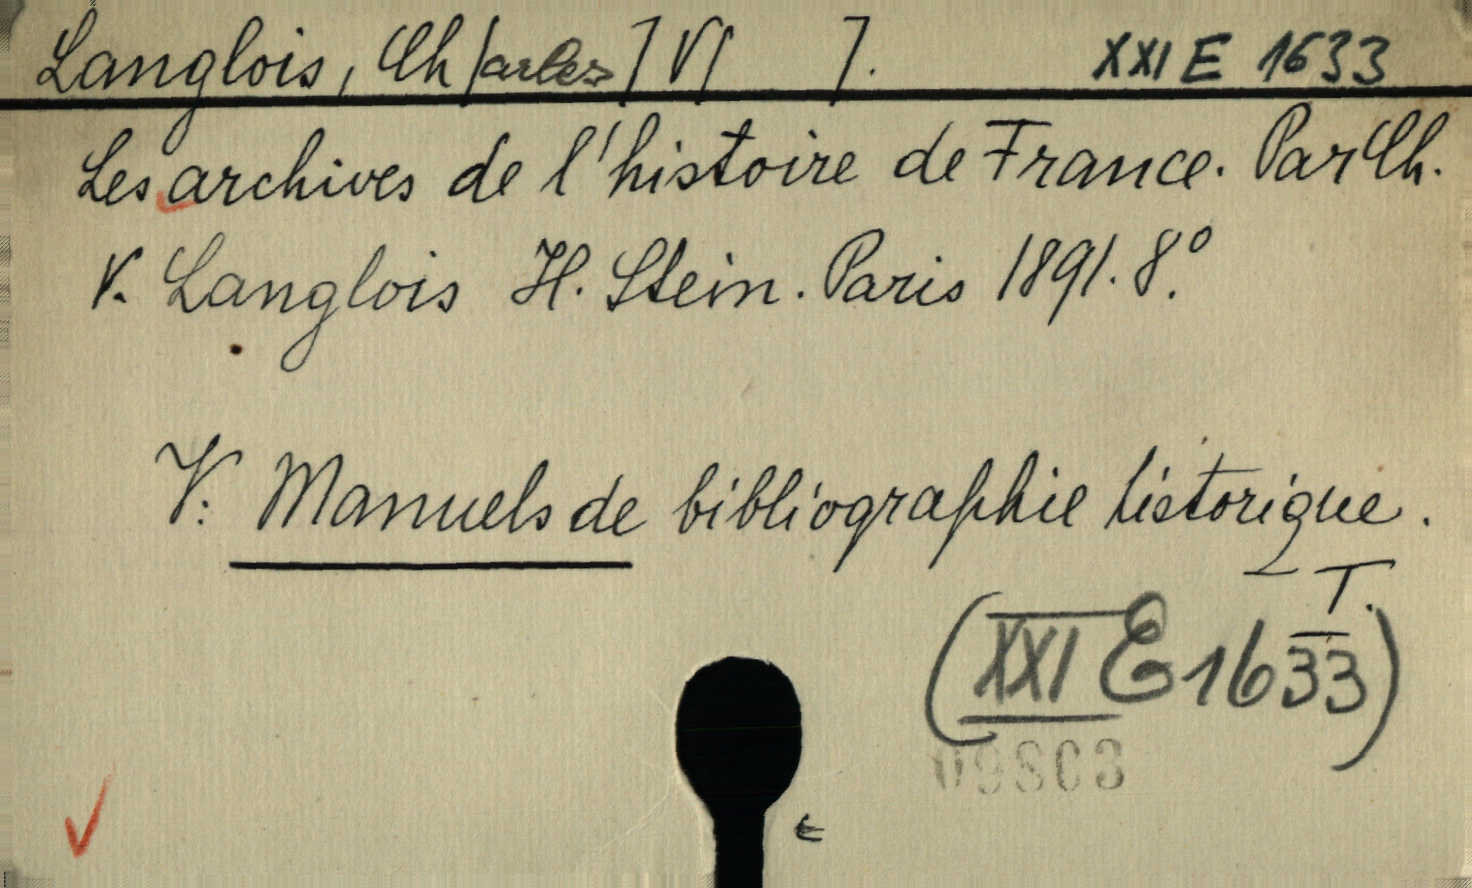 Langlois, Ch[arles] V[ ]. XXI E 1633
Les archives de l'histoire de France. Par Ch.
V. Langlois H. Stein. Paris 1891. 8°.
V: Manuels de bibliographie historique.
I.
(XXI E 1633)
09803